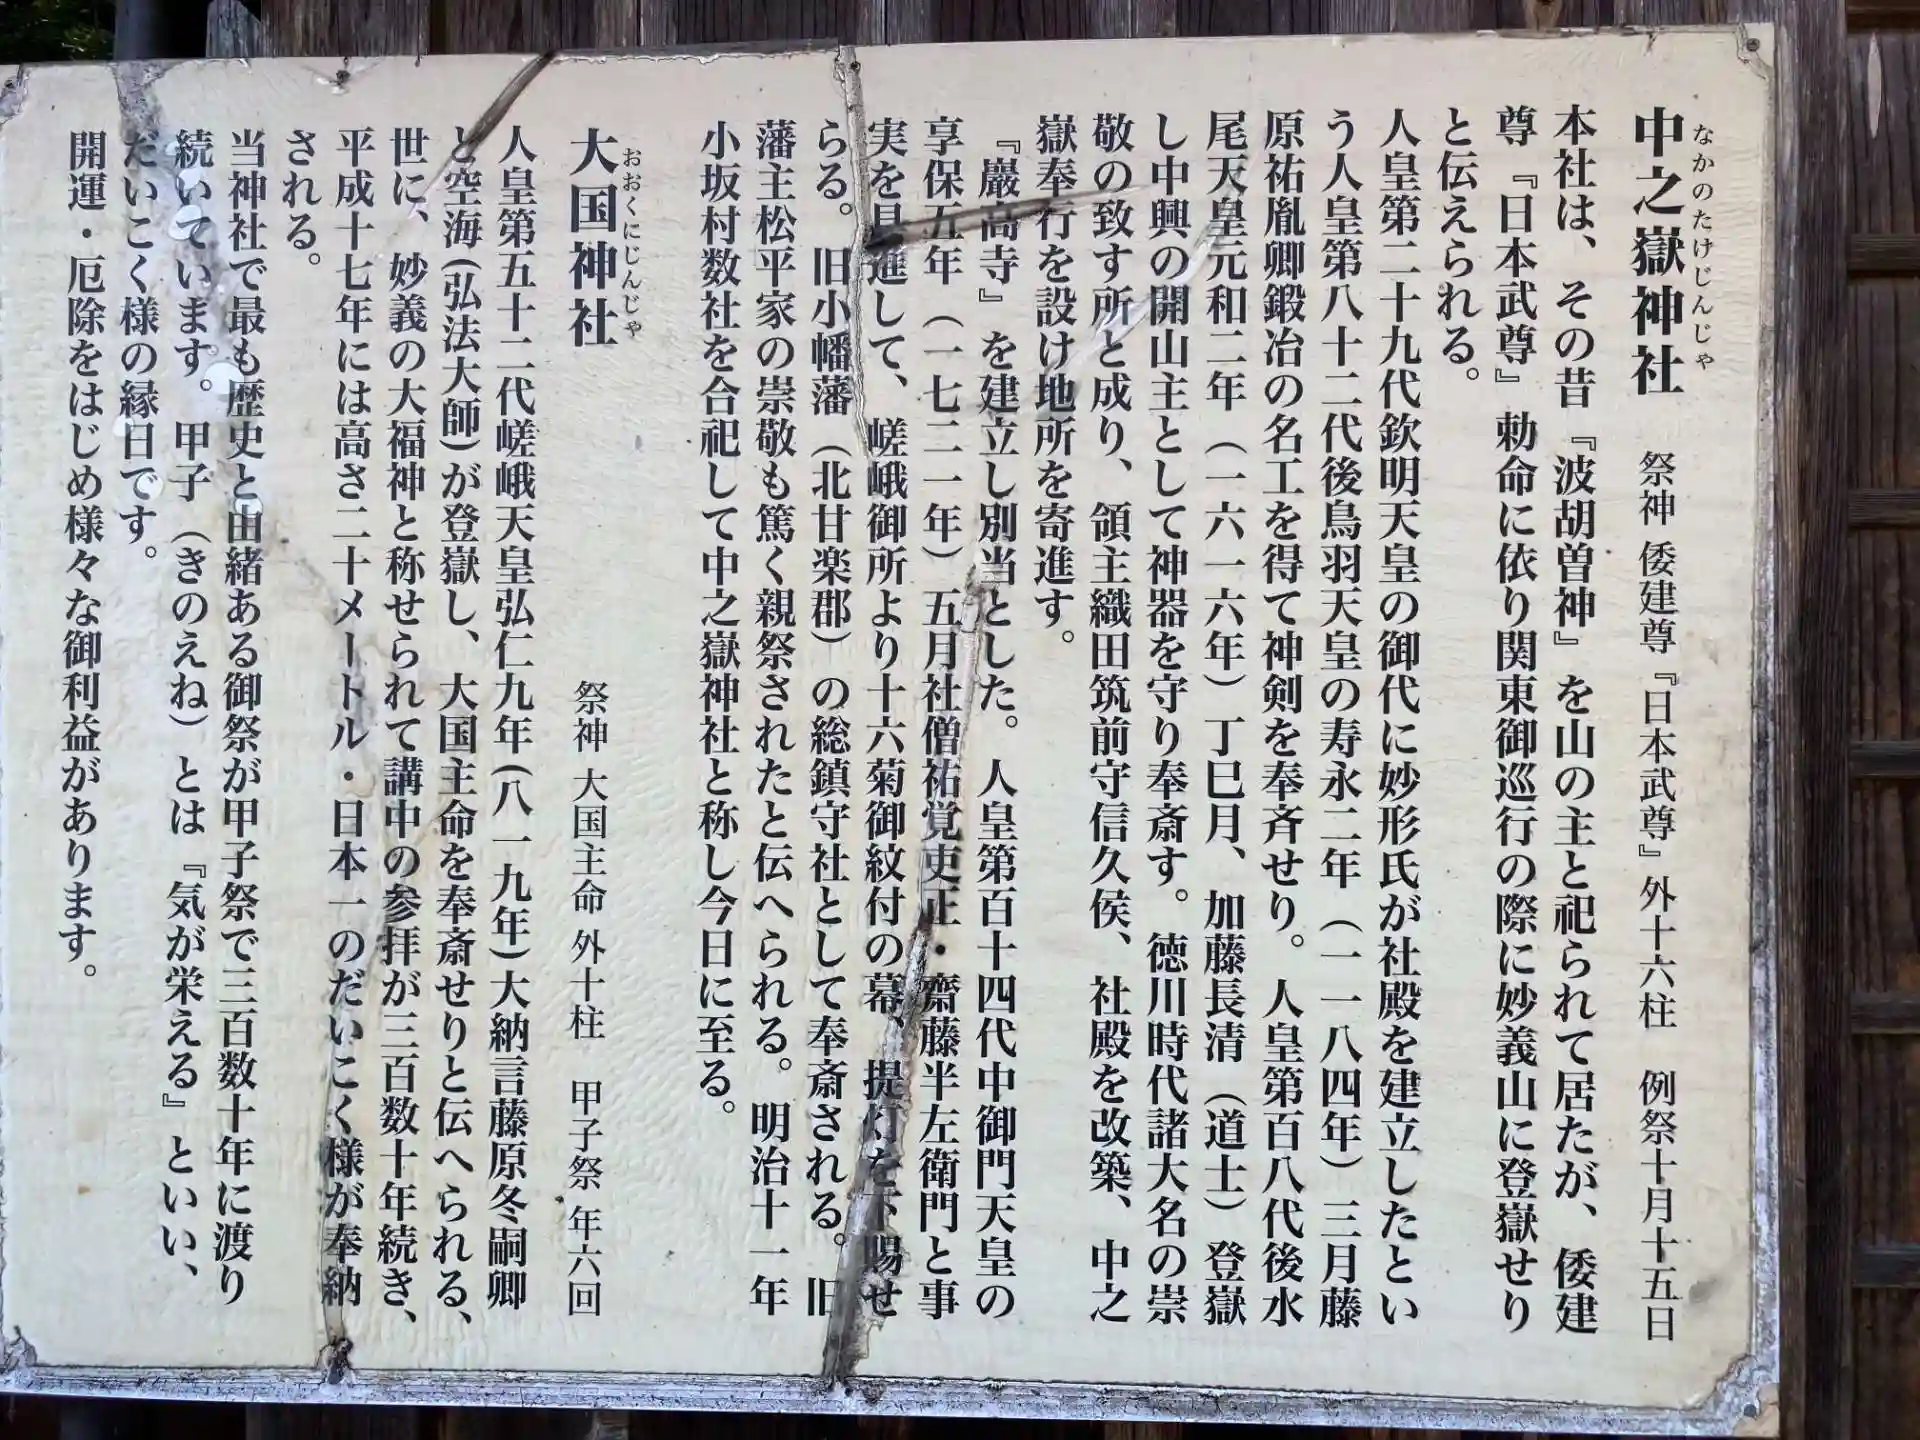 中之嶽神社 祭神 倭建尊『日本武尊』外十六柱 例祭十月十五日
なかのたけじんじゃ
本社は、その昔『波胡曽神』を山の主と祀られて居たが、倭建
尊『日本武尊』勅命に依り関東御巡行の際に妙義山に登嶽せり
と伝えられる。
人皇第二十九代欽明天皇の御代に妙形氏が社殿を建立したとい
う人皇第八十二代後鳥羽天皇の寿永二年（一一八四年）三月藤
原祐胤卿鍛冶の名工を得て神剣を奉斉せり。人皇第百八代後水
尾天皇元和二年（一六一六年）丁巳月、加藤長清（道士）登嶽
し中興の開山主として神器を守り奉斎す。徳川時代諸大名の崇
敬の致す所と成り、領主織田筑前守信久侯、社殿を改築、中之
嶽奉行を設け地所を寄進す。
『巖高寺』を建立し別当とした。人皇第百十四代中御門天皇の
享保五年（一七二一年）五月社僧祐覚吏正・齋藤半左衛門と事
実を具進して、嵯峨御所より十六菊御紋付の幕、提灯を下賜せ
らる。旧小幡藩（北甘楽郡）の総鎮守社として奉斎される。旧
藩主松平家の崇敬も篤く親祭されたと伝へられる。明治十一年
小坂村数社を合祀して中之嶽神社と称し今日に至る。
大国神社 祭神 大国主命 外十柱 甲子祭 年六回
おおくにじんじゃ
人皇第五十二代嵯峨天皇弘仁九年(八一九年)大納言藤原冬嗣卿
と空海(弘法大師)が登嶽し、大国主命を奉斎せりと伝へられる、
世に、妙義の大福神と称せられて講中の参拝が三百数十年続き、
平成十七年には高さ二十メートル・日本一のだいこく様が奉納
される。
当神社で最も歴史と由緒ある御祭が甲子祭で三百数十年に渡り
続いています。甲子（きのえね）とは『気が栄える』といい、
だいこく様の縁日です。
開運・厄除をはじめ様々な御利益があります。